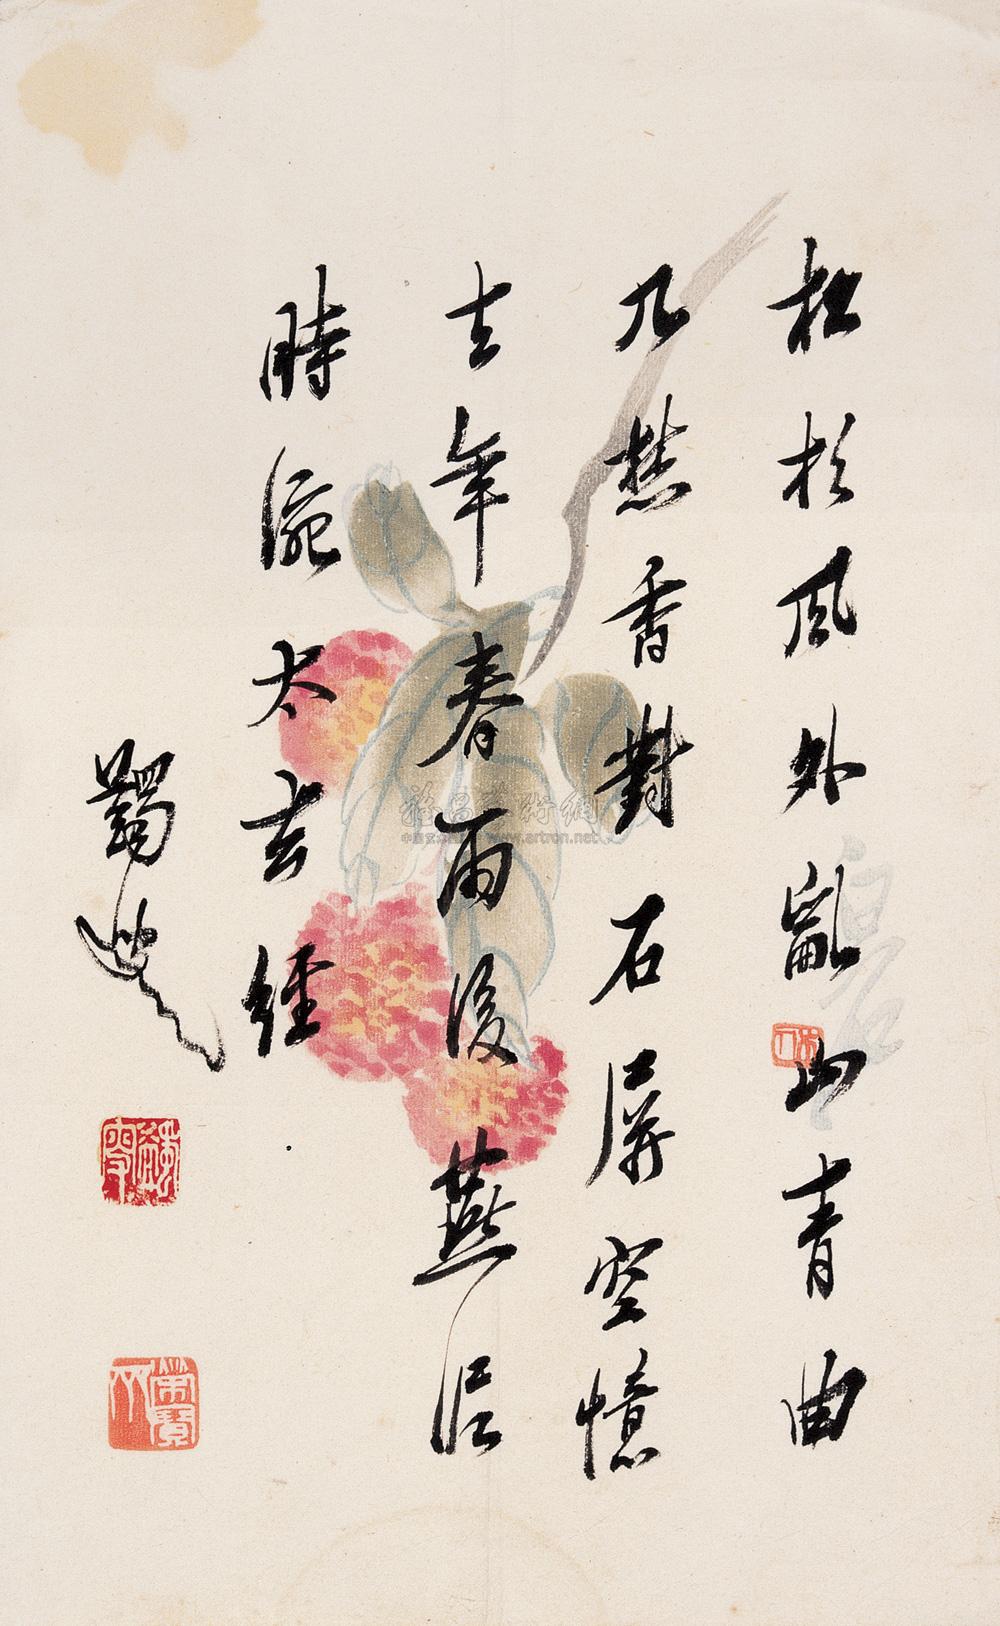 松杉風外亂山青曲
几焚香對石屏空憶
去年春雨後燕泥
時涴太玄經
蠲叟
白石
雅昌藝術網
www.artron.net